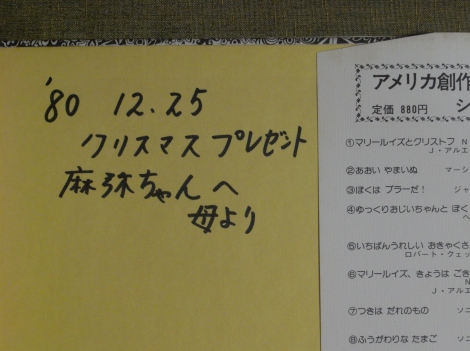 '80 12.25
クリスマス プレゼント
麻弥ちゃんへ
母より
アメリカ創作
定価 880円 シ
①マリールイズとクリストフ N
J・アルエ
②あおい やまいぬ マーシ
③ぼくは ブラーだ! ジャ
④ゆっくりおじいちゃんと ぼく
ヘ
⑤いちばんうれしい おきゃくさ
ロバート・クェッ
⑥マリールイズ、きょうは ごき
N
J・アルエ
⑦つきは だれのもの ソニ
⑧ふうがわりな たまご ソニ